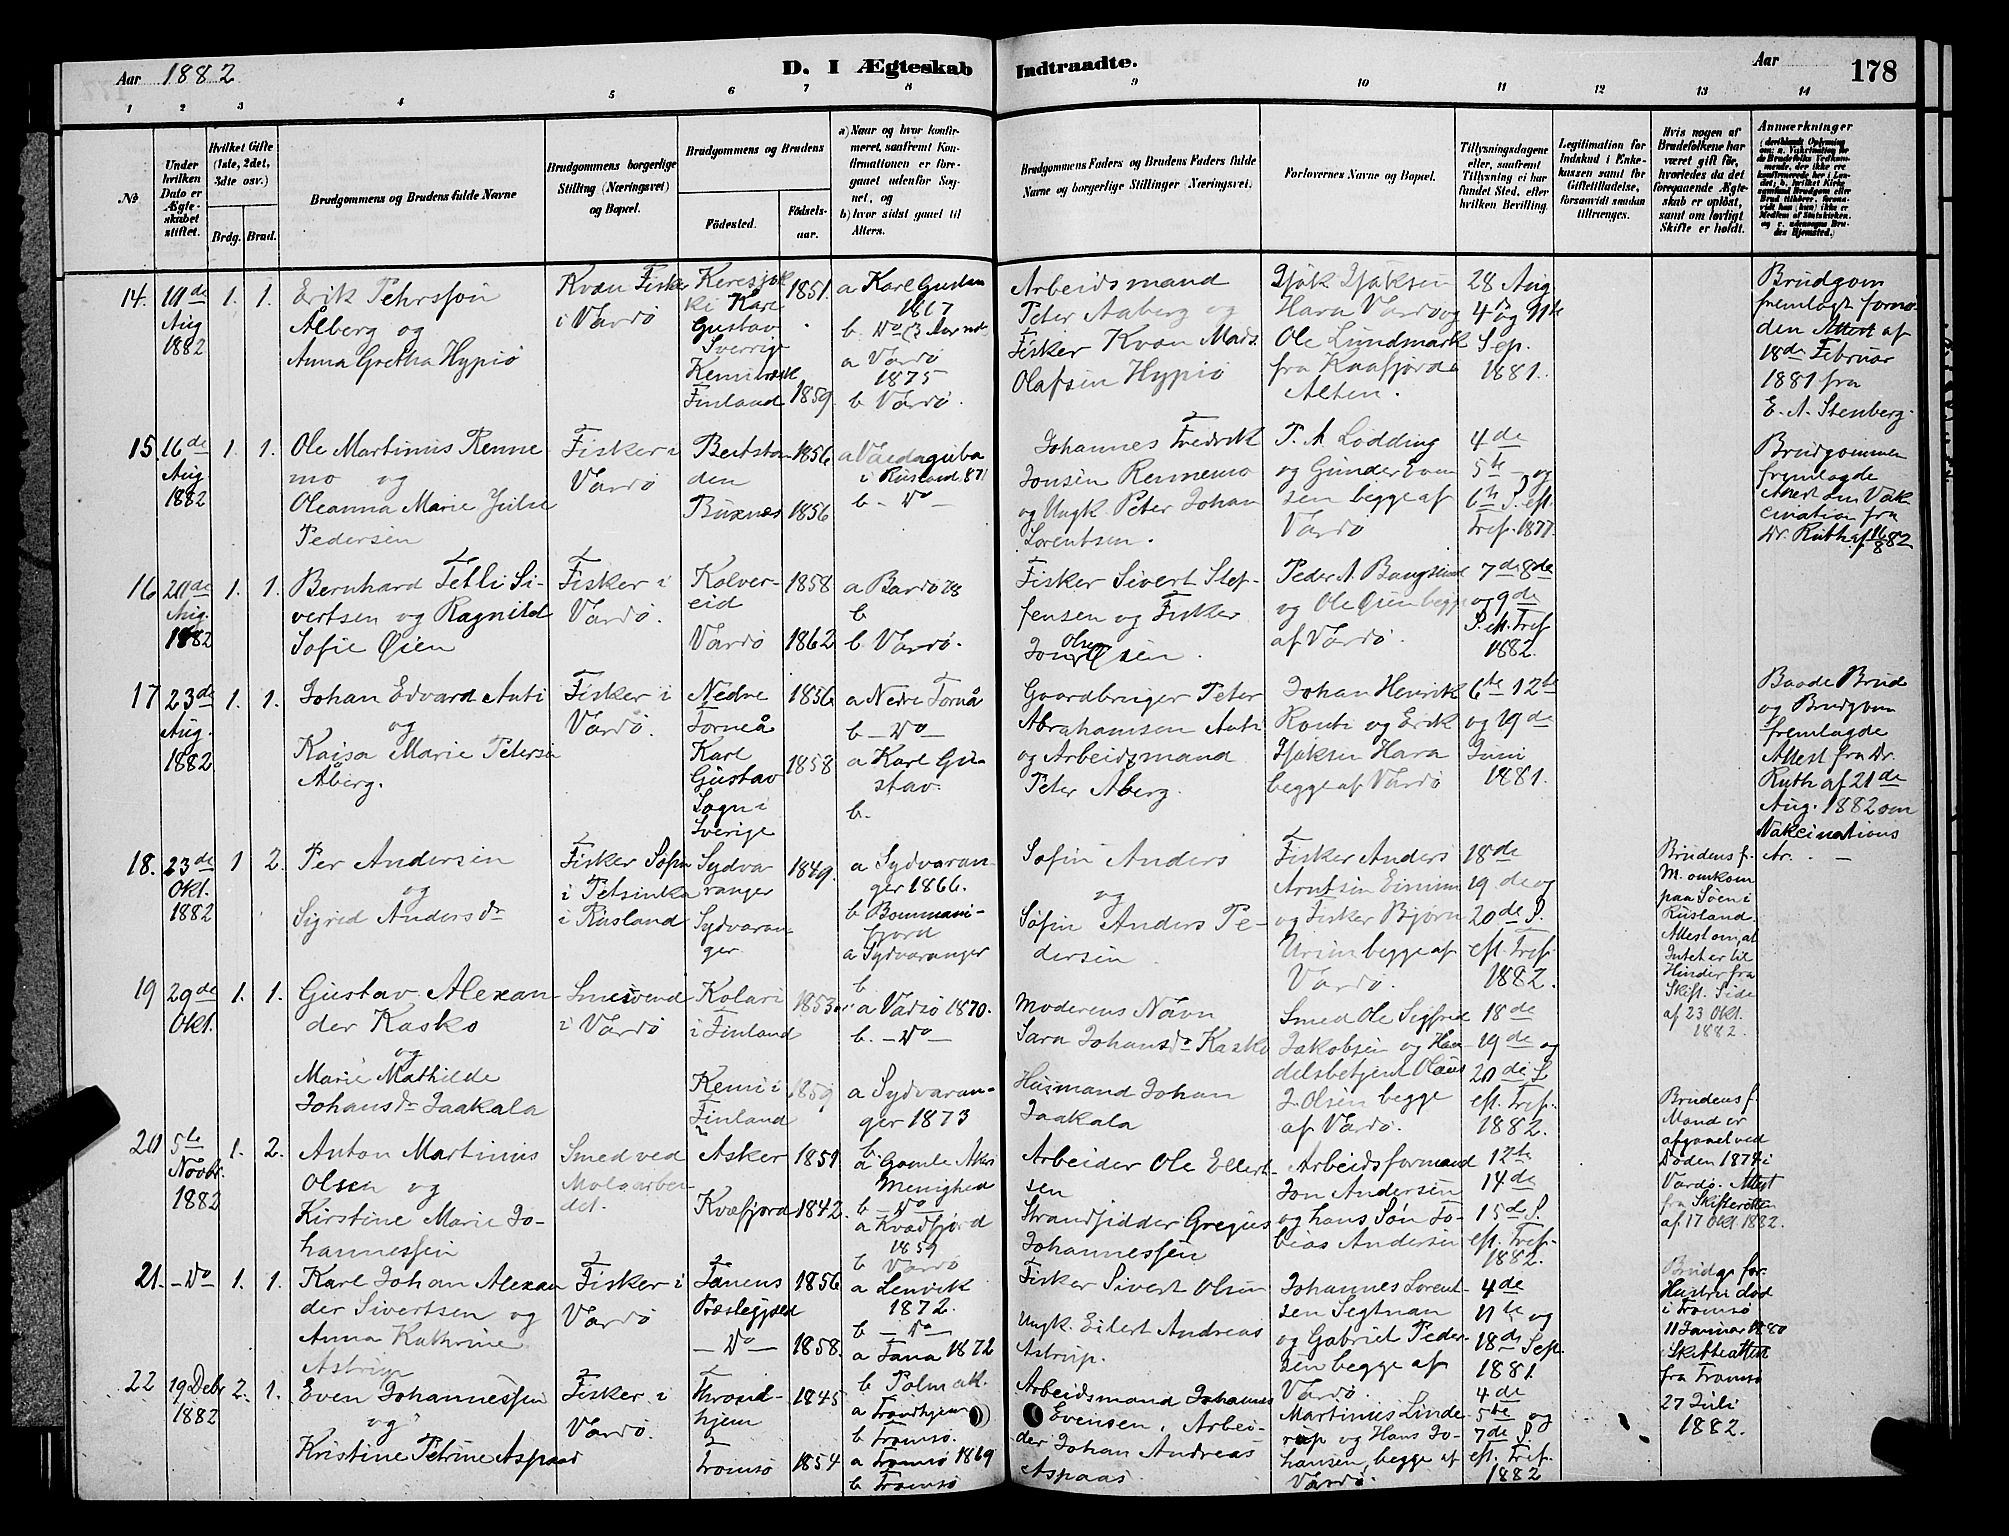 Aar 1882
D. I Ægteskab Indtraadte.
Aar
178
1 2 3 4 5 6 7 8 9 10 11 12 13 14
No
Under hvilken Dato er Ægteskabet stiftet.
Hvilket Gifte (1ste, 2det, 3die osv.)
Brdg. Brud.
Brudgommens og Brudens fulde Navne
Brudgommens borgerlige Stilling (Næringsvei) og Bopæl.
Brudgommens og Brudens
Födested.
Födselsaar.
a) Naar og hvor konfirmeret, saafremt Konfirmationen er foregaaet udenfor Sognet, og
b) hvor sidst gaaet til Alters.
Brudgommens Faders og Brudens Faders fulde Navne og borgerlige Stillinger (Næringsvei).
Forlovernes Navne og Bopæl.
Tillysningsdagene eller, saafremt Tillysning ei har fundet Sted, efter hvilken Bevilling.
Legitimation for Indskud i Enkekassen samt for Giftetilladelse, forsaavidt saadan tiltrænges.
Hvis nogen af Brudefolkene har været gift før, hvorledes da det foregaaende Ægteskab er oplöst, samt om lovligt Skifte er holdt.
Anmærkninger
14. 11de Aug 1882 1. 1.
Erik Pehrsson
Ålberg og
Anna Gretha Hypiö
Kvæn Fisker
i Vardö
Karl
Gustav
Sverrige
Finland
1851.
1859.
a Karl Gustav
1867
b. Do
a Vardö
1875
b Vardö.
Arbeidsmand
Peter Aaberg og
Fisker Kvæn Mads
Olafsen Hypiö
Isak Isaksen
Hara Vardö og
Ole Lundmark
fra Kaafjord i
Alten.
28 Aug
4de og 11te
Sep.
1881.
Brudgom
fremlagt fornö
den Attest af
18de Februar
1881 fra
E. A. Stenberg.
15 16de Aug 1882 1. 1.
Ole Martinus Renne
mo og
Oleanna Marie Julie
Pedersen
Fisker i
Vardö
Beitsta
den
Buxnes
1856
1856
a Vaidaguba
i Rusland 871
b - Do -
Johannes Fredrik
Jonsen Rennemo
og Ungk Peter Johan
Lorentsen.
P. A. Lodding
og Gunder Even
sen begge af
Vardö
4de
5te - og
6te S. eft.
Tref. 1877.
Brudgommen
fremlagde
Attest om Vak
cination fra
Dr. Ruth af
16 20de Aug. 1882 1. 1.
Bernhard Tetli Si-
vertsen og Ragnild
Sofie Öien
Fisker i
Vardö.
Kolver-
eid
Vardö
1858
1862
a Bardö 78
b
b. Vardö.
Fisker Sivert Stef-
fensen og Fisker
Jon Olsen Öien.
Peder A. Bangsund
og Ole Öien begge
af Vardö.
7de 8de
og 9de
S. eft. Tref
1882.
17 23de Aug. 1882 1. 1.
Johan Edvard Anti
og
Kaisa Marie Petersen
Åberg.
Fisker i
Vardö.
Nedre
Torneå
Karl
Gustav
Sogn i
Sverige
1856
1858
a Nedre Torneå
b - Do -
a Karl Gu-
stav.
b.
Gaardbruger Peter
Abrahamsen Anti
og Arbeidsmand
Peter Aberg.
Johan Henrik
Routi og Erik
Isaksen Hara
begge af Vardö
6te 12te
og 19de
Juni
1881.
Baade Brud
og Brudgom
fremlagde
Attest fra Dr.
Ruth af 21de
Aug. 1882 om
Vakcinations
Ar. -
18. 23de Okt. 1882 1 2.
Per Andersen
og
Sigrid Andersdr
Fisker Söfin
i Petsinka
i Rusland
Sydva
ranger
Sydvaran-
ger
1849.
a Sydvaran-
ger 1866.
b Bommeni-
fjord
a Sydvaranger
b
Søfin Anders
og
Søfin Anders Pe-
dersen.
Fisker Anders
Arntsen
og Fisker Björn
Ursin begge af
Vardö.
18de
19de og
20de S.
eft. Tref.
1882.
Brudens f.
M. omkom
paa Söen i
Rusland.
Attest om, at
Intet er til
Hinder fra
Skift. Side
af 23 Okt.
1882.
19 29de Okt. 1. 1.
Gustav Alexan
der Kasko
og
Marie Mathilde
Johansdr Jaakala
Smesvend
i Vardö
Kolari
i Finland
Kemi i
Finland
1853
1859
a Vadsö 1870.
b. - Do -
a Sydvaran-
ger 1873
b
Moderens Navn
Sara Johansdr Kasko
Husmand Johan
Jaakala
Smed Ole Sigfred
Jakobsen og Han
delsbetjent Olaus
J. Olsen begge
af Vardö.
18de
19de og
20de S.
eft. Tref.
1882.
20 5te Novbr. 1882 1. 2.
Anton Martinius
Olsen og
Kirstine Marie Jo-
hannessen
Smed ved
Moloarbei
det.
Asker
Kvæfjord
1851
1842.
a Gamle Akers
Menighed
b - Do -
a Kvædfjord
1859
b Vardö
Arbeider Ole Ellert-
sen
Strandsidder Gregus
Johannessen
Arbeidsformand
Jon Andersen
og hans Søn To-
bias Andersen
12te
14de
15de S.
eft. Tref.
1882.
Brudens f.
Mand er
afgaaet ved
Döden 1874 i
Vardö. Attest
fra Skifteretten
af 17 Okt. 1882.
21. - Do 1. 1.
Karl Johan Alexan
der Sivertsen og
Anna Kathrine
Astrup
Fisker i
Vardö
Tanens
Præstegjeld
- Do -
1856
1858.
a Lenvik
1872.
b - Do -
a Tana 1872
b Polmak.
Fisker Sivert Olsen
Ungk. Eilert Andreas
Astrup.
Johannes Lorent-
sen Segtnan
og Gabriel Peder-
sen begge af
Vardö.
4de
11te og
18de Sep.
1881.
22 19 Debr 1882 2. 1.
Even Johannessen
og
Kristine Petrine Aspaas
Fisker i
Vardö.
Thrond-
hjem
Tromsö
1845
1854
a Trondhjem
b Tromsö.
a Tromsö 1869
b Tromsö
Arbeidsmand Johannes
Evensen, Arbei-
der Johan Andreas
Aspaas.
Martinius Linde-
rup og Hans Jo-
hansen, begge af
Vardö.
4de
5te og
7de S.
eft. Tref.
1882
Brudg. for.
Hustru död
i Tromsö
11 Januar 1880
Skifteattest
fra Tromsö
27 Juli
1882.